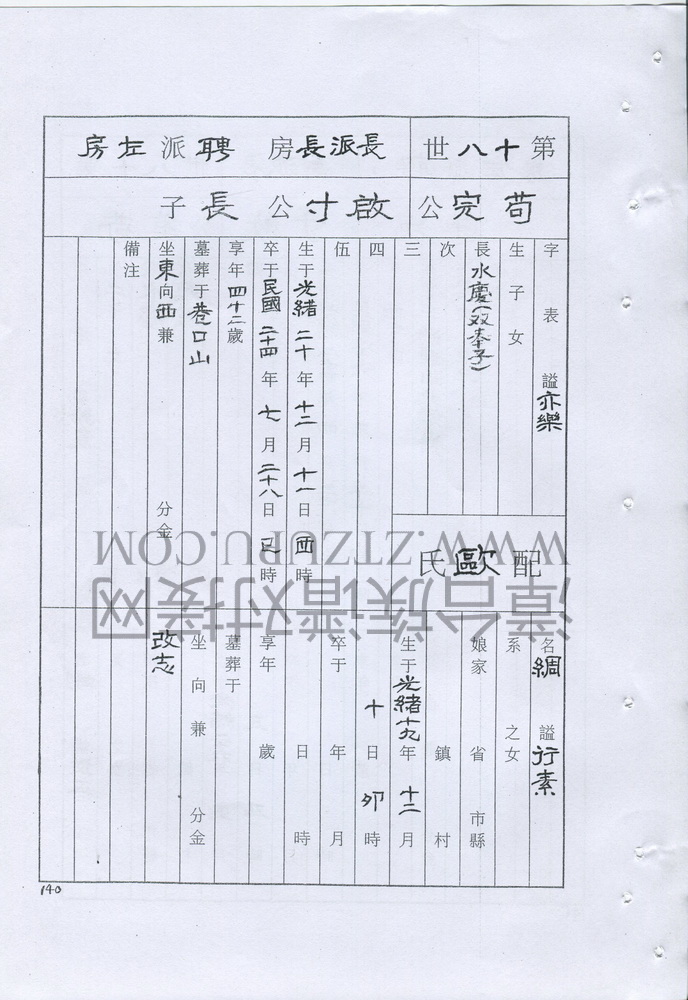 第十八世
長派長房 聘派左房
苟完公
啟寸公長子
字 表 諡亦樂
生子女
長水慶(双奉子)
次
三
四
伍
生于光緒二十年十二月十一日酉時
卒于民國二十四年七月二十八日巳時
享年四十二歲
墓葬于巷口山
坐東向西兼 分金
備注
配歐氏
名綢 諡行素
系 之女
娘家 省 市縣
鎮 村
生于光緒十九年十二月
十日卯時
卒于 年 月
日 時
享年 歲
墓葬于
坐 向 兼 分金
改志
140
WWW.ZTZUPU.COM
漳台族谱对接网